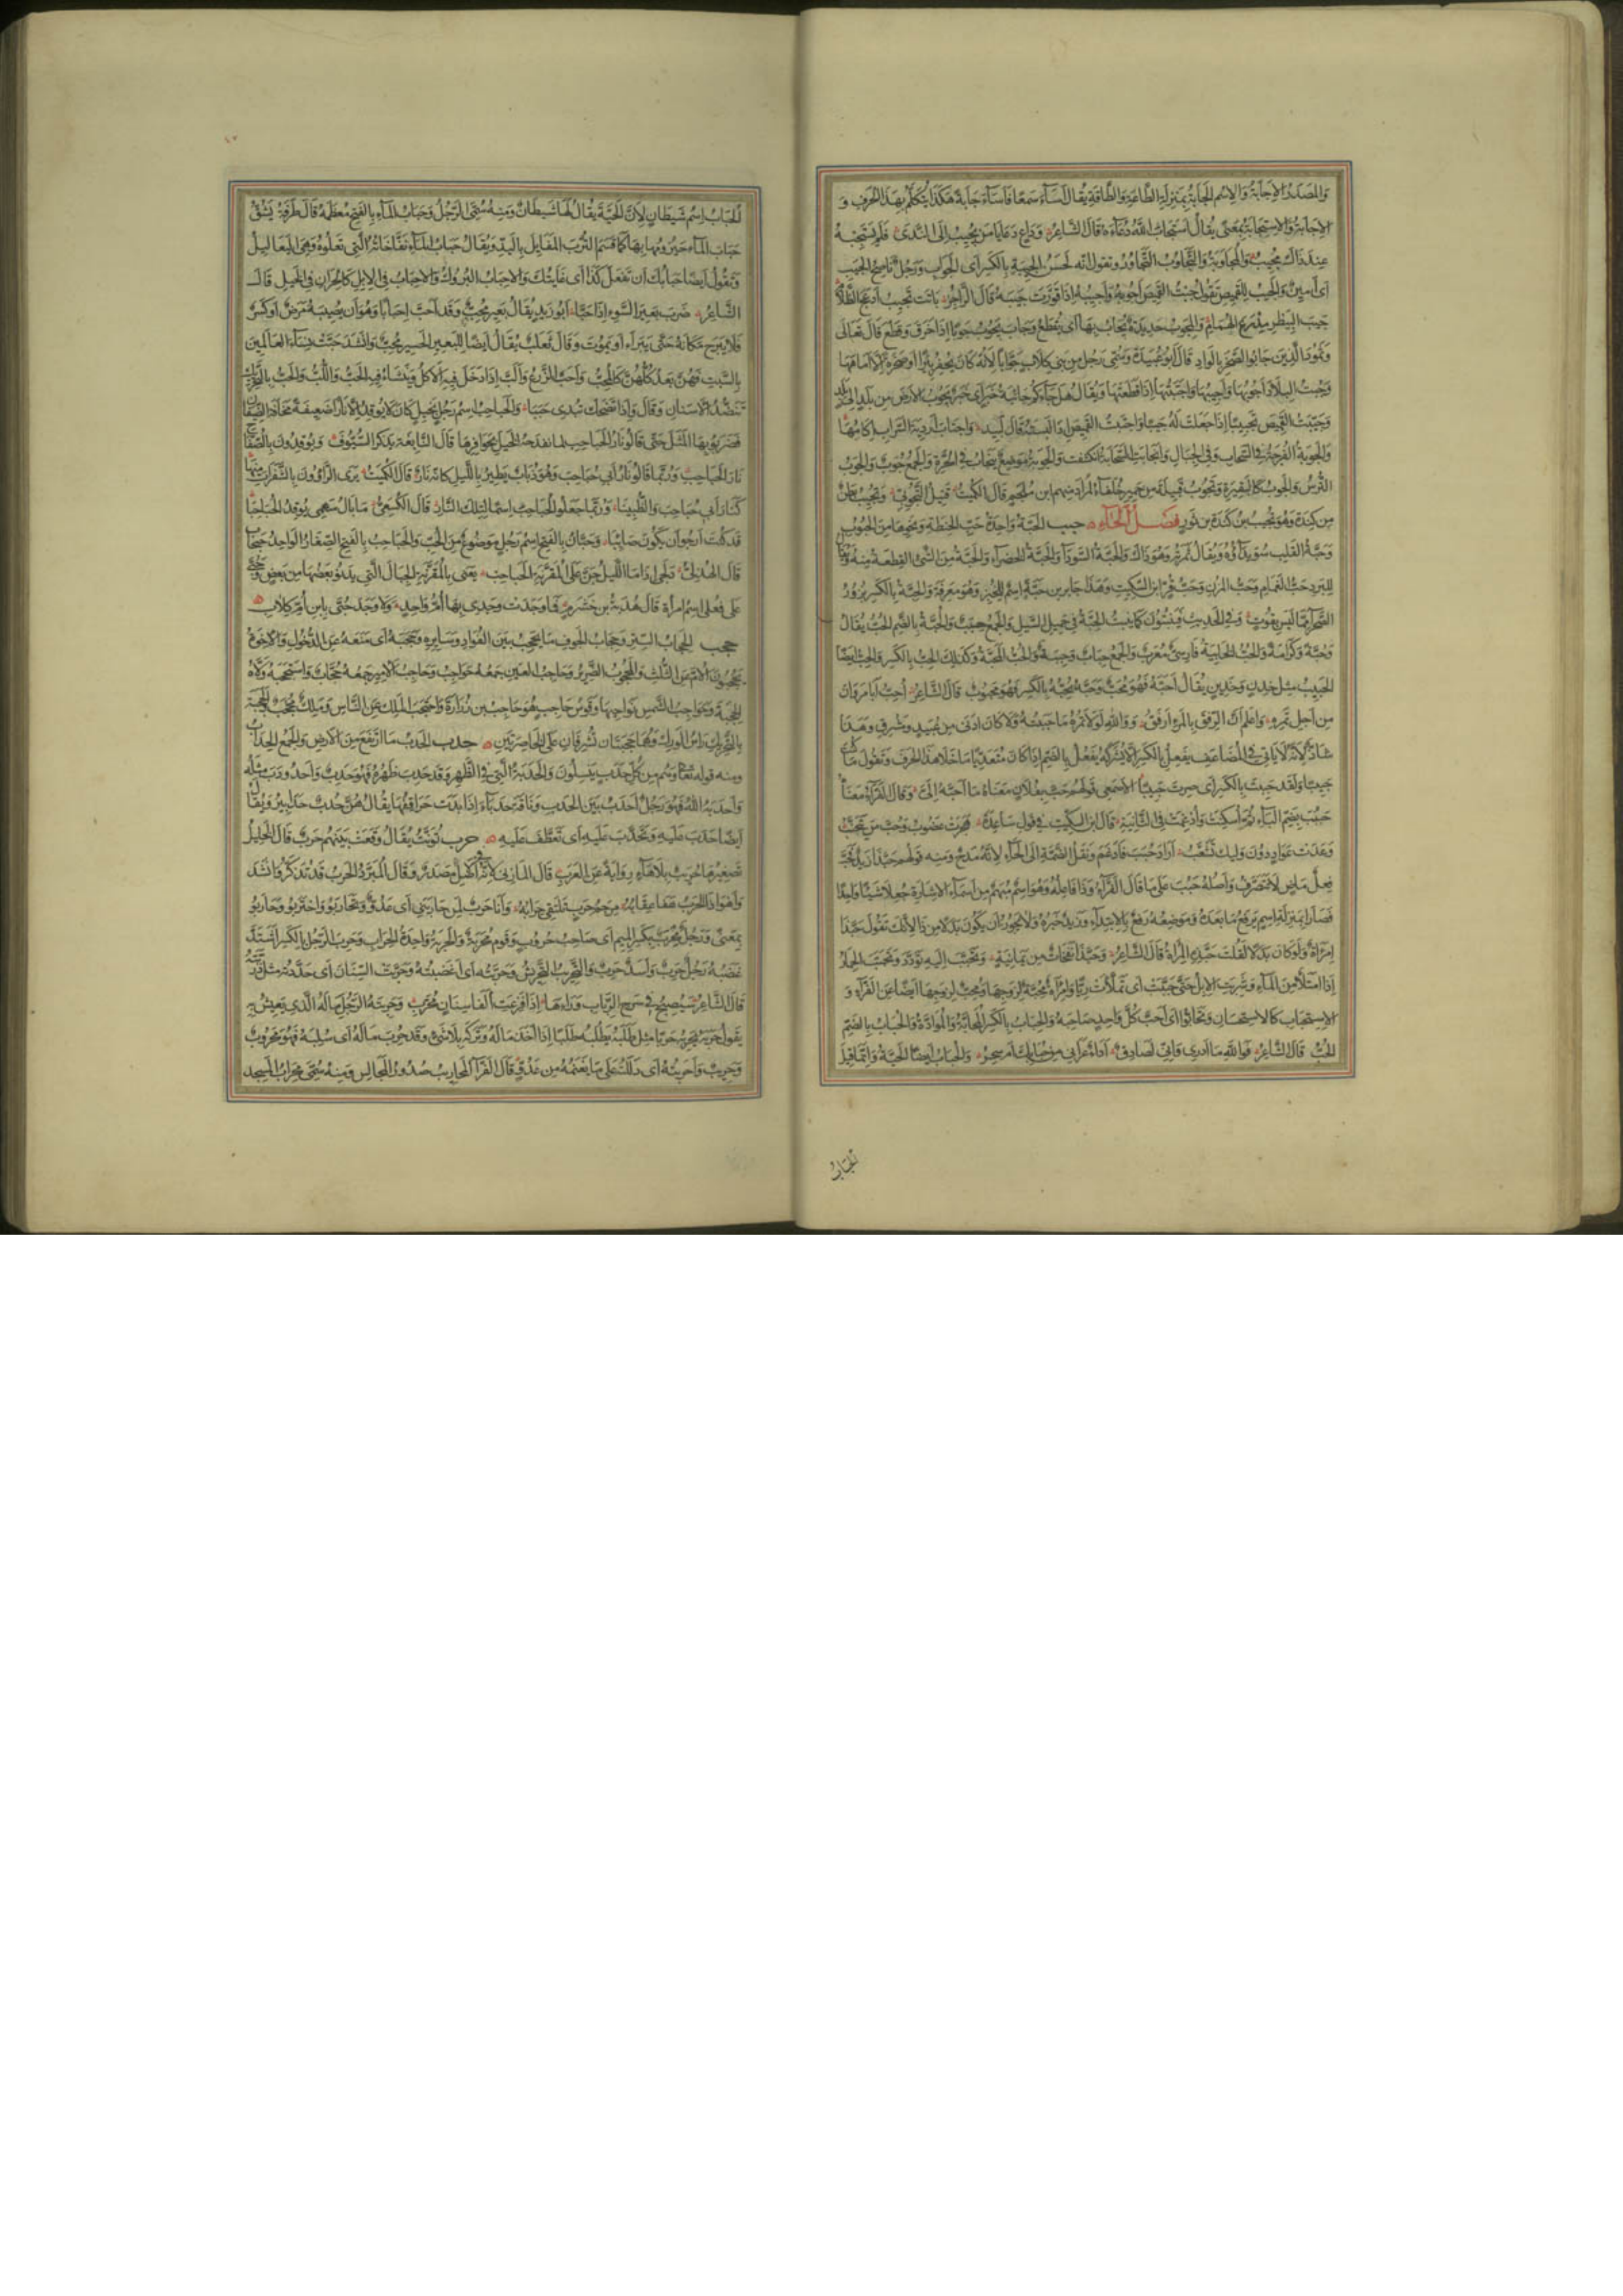 والمصدر الاجابة والاسم الجابة بمنزلة الطاعة والطاقة يقال اساء سمعا فاساء جابة هكذا يتكلم بهذا الحرف و
الاجابة والاستجابة بمعنى يقال استجاب الله دعاءه قال الشاعر وداع دعا يا من يجيب الى الندى فلم يستجبه
عند ذاك مجيب والمجاوبة والتجاوب التحاور وتقول انه لحسن الجيبة بالكسر اى الجواب ورجل ناصح الجيب
اى امين والجيب للقميص تقول جبت القميص اجوبه واجيبه اذا قورت جيبه قال الراجز باتت تجيب ادعج الظلام
جيب البيطر مدرع الهمام والمجوب حديدة يجاب بها اى يقطع وجاب يجوب جوبا اذا خرق وقطع قال تعالى
وثمود الذين جابوا الصخر بالواد قال ابو عبيدة وسمى رجل من بنى كلاب جوابا لانه كان لا يحفر بئرا او صخرة الا اماهها
وجبت البلاد اجوبها واجيبها واجتبتها اذا قطعتها ويقال هل جاءكم جائبة خبر اى خبر يجوب الارض من بلد الى بلد
وجيبت القميص تجييبا اذا جعلت له جيبا واجتبت القميص اذا لبسته قال لبيد واجتاب اردية السراب اكامها
والجوبة الفرجة فى السحاب وفى الجبال وانجابت السحابة انكشفت والجوبة موضع ينجاب فى الحرة والجمع جوب والجوب
الترس والجوب كالبقيرة وتجوب قبيلة من حمير حلفاء لمراد منهم ابن ملجم قال الكميت قتيل التجوبى وتجيب بطن
من كندة وهو تجيب بن كندة بن ثور فصل الحاء حبب الحبة واحدة حب الحنطة ونحوها من الحبوب
وحبة القلب سويداؤه ويقال ثمرته وهو ذاك والحبة السوداء والحبة الخضراء والحبة من الشئ القطعة منه ويقال
للبرد حب الغمام وحب المزن وحب قر ابن السكيت وهذا جابر بن حبة اسم للخبز وهو معرفة والحبة بالكسر بزور
الصحراء مما ليس بقوت وفى الحديث فينبتون كما تنبت الحبة فى حميل السيل والجمع حبب والحبة بالضم الحب يقال
وحبة وكرامة والحب الخابية فارسى معرب والجمع حباب وحببة والحب المحبة وكذلك الحب بالكسر والحب ايضا
الحبيب مثل خدن وخدين يقال احبه فهو محب وحبه يحبه بالكسر فهو محبوب قال الشاعر احب ابا مروان
من اجل تمره واعلم ان الرفق بالمرء ارفق ووالله لولا تمره ما حببته ولا كان ادنى من عبيد ومشرق وهذا
شاذ لانه لا ياتى فى المضاعف يفعل بالكسر الا يشركه يفعل بالضم اذا كان متعديا ما خلا هذا الحرف وتقول ما كنت
حبيبا ولقد حببت بالكسر اى صرت حبيبا الاصمعى قولهم حب بفلان معناه ما احبه الى وقال الفراء معناه
حبب بضم الباء ثم اسكنت وادغمت فى الثانية قال ابن السكيت فى قول ساعدة هجرت غضوب وحب من يتجنب
وعدت عواد دون وليك تشعب اراد حبب فادغم ونقل الضمة الى الحاء لانه مدح ومنه قولهم حبذا زيد فحب
فعل ماض لا يتصرف واصله حبب على ما قال الفراء وذا فاعله وهو اسم مبهم من اسماء الاشارة جعلا شيئا واحدا
فصارا بمنزلة اسم يرفع ما بعده وموضعه رفع بالابتداء وزيد خبره ولا يجوز ان يكون بدلا من ذا لانك تقول حبذا
امرأة ولو كان بدلا لقلت حبذه المرأة قال الشاعر وحبذا نفحات من يمانية وتحبب اليه تودد وتحبب الحمار
اذا امتلأ من الماء وشربت الابل حتى حببت اى تملأت ريا وامرأة محبة لزوجها ومحب لزوجها ايضا عن الفراء و
الاستحباب كالاستحسان وتحابوا اى احب كل واحد صاحبه والحباب بالكسر المحابة والموادة والحباب بالضم
الحب قال الشاعر فوالله ما ادرى وانى لصادق اداء عرانى من حبابك ام سحر والحباب ايضا الحية وانما قيل
الحباب
الحباب اسم شيطان لان الحية يقال لها شيطان ومنه سمى الرجل وحباب الماء بالفتح معظمه قال طرفة يشق
حباب الماء حيزومها بها كما قسم الترب المفايل باليد ويقال حباب الماء نفاخاته التى تعلوه وهى اليعاليل
وتقول ايضا حبابك ان تفعل كذا اى غايتك والاحباب البروك والاحباب فى الابل كالحران فى الخيل قال
الشاعر ضرب بعير السوء اذ احبا ابو زيد يقال بعير محب وقد احب احبابا وهو ان يصيبه مرض او كسر
فلا يبرح مكانه حتى يبرأ او يموت وقال ثعلب يقال ايضا للبعير الحسير محب وانشد حبت نساء العالمين
بالسبب فهن بعد كلهن كالمحب واحب الزرع والب اذا دخل فيه الاكل وينشأ فيه الحب واللب والحبب بالتحريك
تنضد الاسنان وقال واذا تضحك تبدى حببا والحباحب اسم رجل بخيل كان لا يوقد الا نارا ضعيفة مخافة الضيفان
فضربوا بها المثل حتى قالوا نار الحباحب لما تقدحه الخيل بحوافرها قال النابغة يذكر السيوف ويوقدون بالصفاح
نار الحباحب وربما قالوا نار ابى حباحب وهو ذباب يطير بالليل كانه نار قال الكميت يرى الراؤون بالشفرات منها
كنار ابى حباحب والظبينا وربما جعلوا الحباحب اسما لتلك النار قال الكسعى ما بال سهمى يوقد الحباحبا
قد كنت ارجو ان يكون صائبا وحبان بالفتح اسم رجل موضوع من الحب والحباحب بالفتح الصغار الواحد حبحاب
قال الهذلى دلجى اذا ما الليل جن على المقرنة الحباحب يعنى بالمقرنة الجبال التى يدنو بعضها من بعض وحبى
على فعلى اسم امرأة قال هدبة بن خشرم فما وجدت وجدى بها ام واحد ولا وجد حبى بابن ام كلاب
حجب الحجاب الستر وحجاب الجوف ما يحجب بين الفؤاد وسايره وحجبه اى منعه عن الدخول والاخوة
يحجبون الام عن الثلث والمحجوب الضرير وحاجب العين جمعه حواجب وحاجب الامير جمعه حجاب واستحجبه ولاه
الحجبة وحواجب الشمس نواحيها وقوس حاجب هو حاجب بن زرارة واحتجب الملك عن الناس وملك محجب والحجبة
بالتحريك راس الورك وهما حجبتان تشرفان على الخاصرتين حدب الحدب ما ارتفع من الارض والجمع الحداب
ومنه قوله تعالى وهم من كل حدب ينسلون والحدبة التى فى الظهر وقد حدب ظهره فهو حدب واحدودب مثله
واحدبه الله فهو رجل احدب بين الحدب وناقة حدباء اذا بدت حراقفها يقال هن حدب حدابير ويقال
ايضا حدب عليه وتحدب عليه اى تعطف عليه حرب الحرب تؤنث يقال وقعت بينهم حرب قال الخليل
تصغيرها حريب بلا هاء رواية عن العرب قال المازنى لانه فى الاصل مصدر وقال المبرد الحرب قد تذكر وانشد
وهو اذا الحرب هفا عقابه مرجم حرب تلتقى حرابه وانا حرب لمن حاربنى اى عدو وتحاربوا واحتربوا وحاربوا
بمعنى ورجل محرب بكسر الميم اى صاحب حروب وقوم محربة والحربة واحدة الحراب وحرب الرجل بالكسر اشتد
غضبه ورجل حرب واسد حرب والتحريب التحريش وحربته اى اغضبته وحربت السنان اى حددته مثل ذربته
قال الشاعر سيصبح فى سرح الرباب وراءها اذا فزعت الفا سنان محرب وحريبة الرجل ماله الذى يعيش به
يقول حربه يحربه حربا مثل طلبه يطلبه طلبا اذا اخذ ماله وتركه بلا شئ وقد حرب ماله اى سلبه فهو محروب
وحريب واحربته اى دللته على ما يغنمه من عدو قال الفراء المحاريب صدور المجالس ومنه سمى محراب المسجد